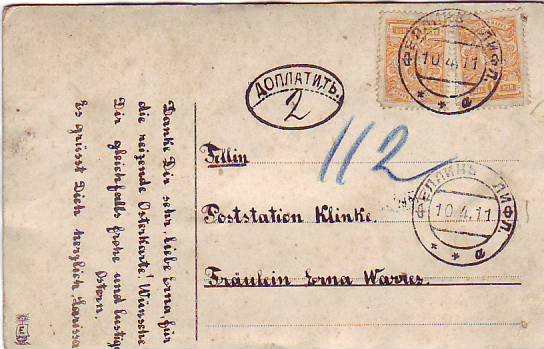 Danke Dir sehr, liebe Erna, für
die reizende Osterkarte! Wünsche
Dir gleichfalls frohe und lustige
Ostern.
Es grüsst Dich herzlich Larissa
ДОПЛАТИТЬ.
2
112
ФЕЛЛИНЪ ЛИФЛ.
10.4.11
* * a
Fellin
Poststation Klinke.
Fräulein Erna Warres.
ФЕЛЛИНЪ ЛИФЛ.
10.4.11
* * a